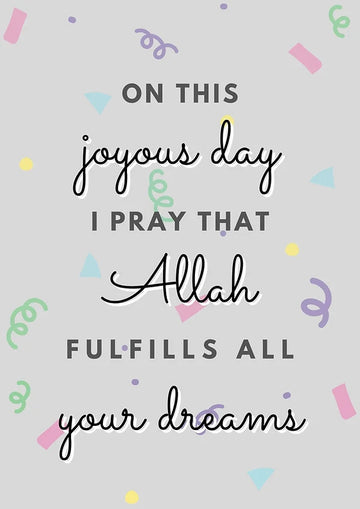 ON THIS
joyous day
I PRAY THAT
Allah
FULFILLS ALL
your dreams